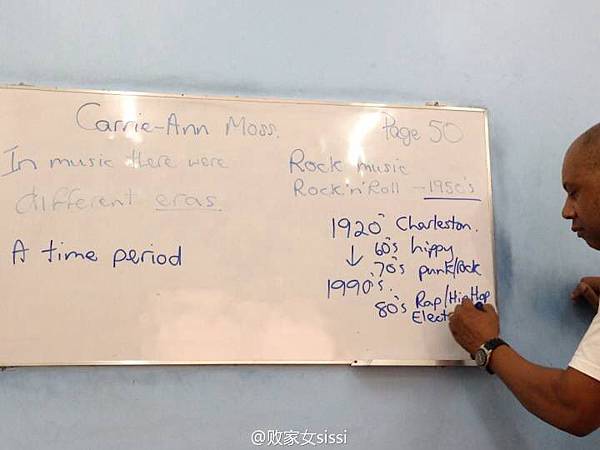 Carrie-Ann Moss.
Page 50
In music there were
different eras
A time period
Rock music
Rock'n'Roll - 1950's
1920's Charleston.
↓ 60's hippy
70's punk/rock
1990's.
80's Rap/HipHop
Elect
@败家女sissi